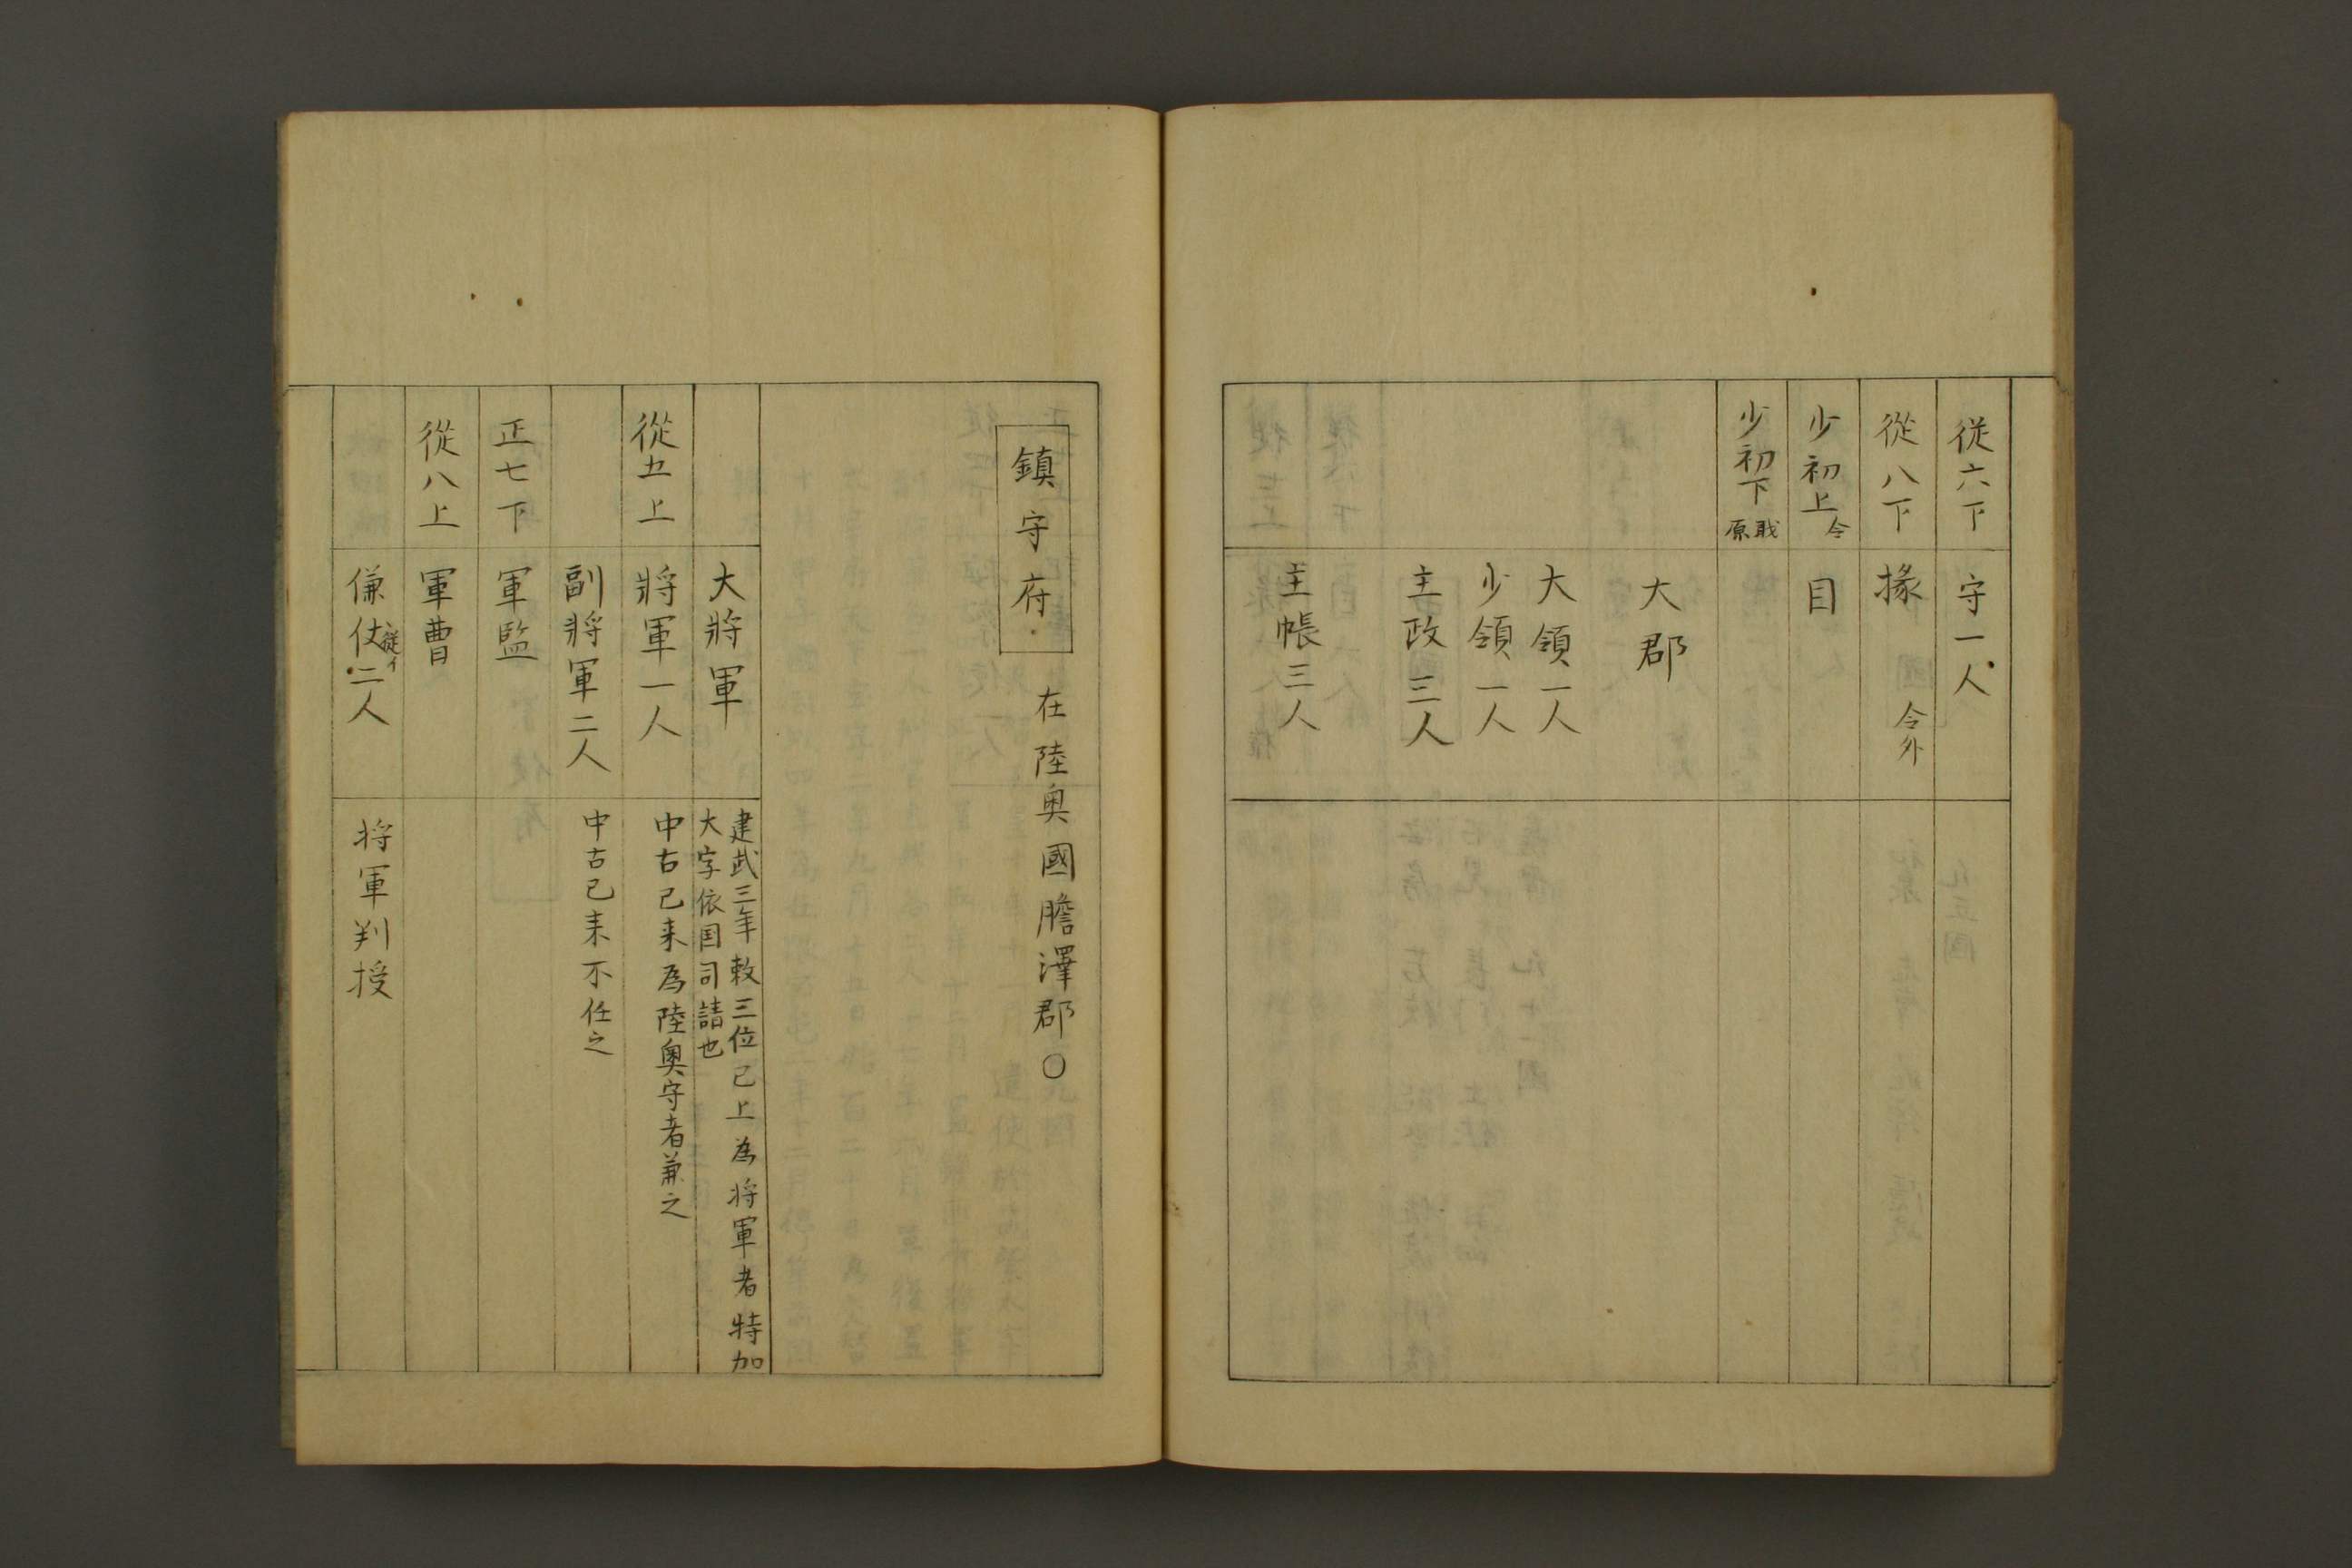 従六下 守一人
從八下 掾 令外
少初上 令 目
少初下 戝原
大郡
大領一人
少領一人
主政三人
主帳三人
鎮守府 在陸奥國膽澤郡○
大將軍 建武三年敕三位已上為将軍者特加
大字依国司請也
從五上 將軍一人 中古已来為陸奥守者兼之
副將軍二人 中古已来不任之
正七下 軍監
從八上 軍曹
傔仗二人 従イ 将軍判授